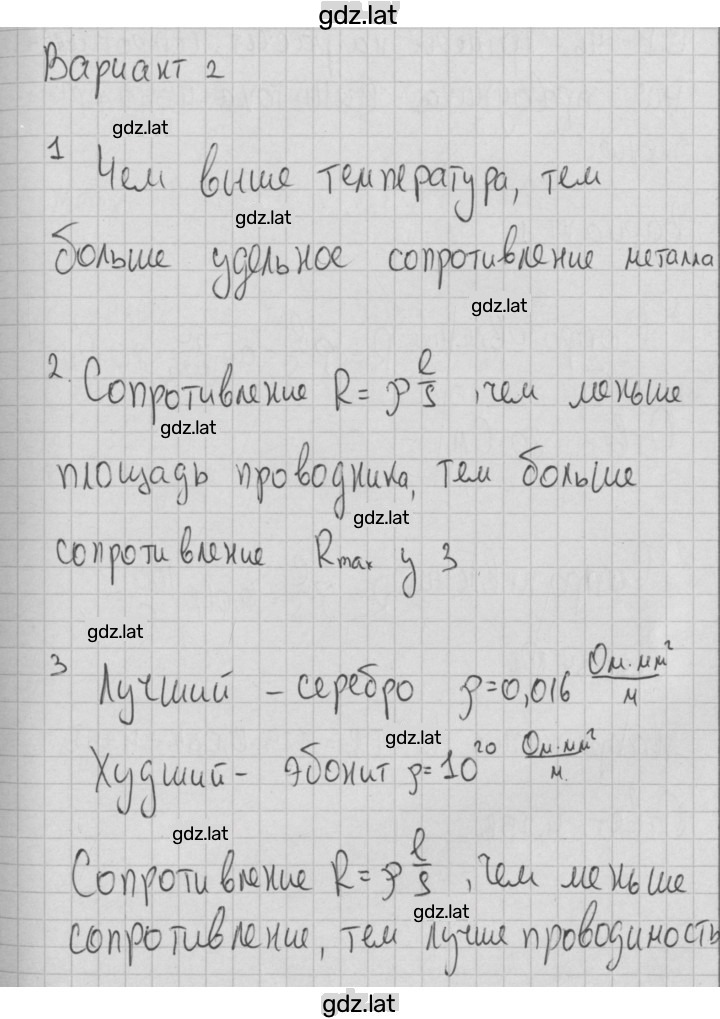 gdz.lat
Вариант 2
gdz.lat
1 Чем выше температура, тем
gdz.lat
больше удельное сопротивление металла
gdz.lat
2. Сопротивление R = ρ l/S , чем меньше
gdz.lat
площадь проводника, тем больше
gdz.lat
сопротивление Rmax у 3
gdz.lat
3 Лучший - серебро ρ=0,016 Ом·мм²/м
gdz.lat
Худший - эбонит ρ=10²⁰ Ом·мм²/м.
gdz.lat
Сопротивление R = ρ l/S , чем меньше
gdz.lat
сопротивление, тем лучше проводимость
gdz.lat